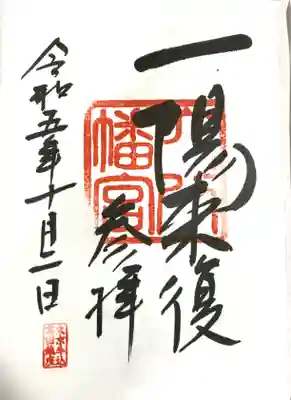 一陽来復
参拝
幡宮
令和五年十月二一日